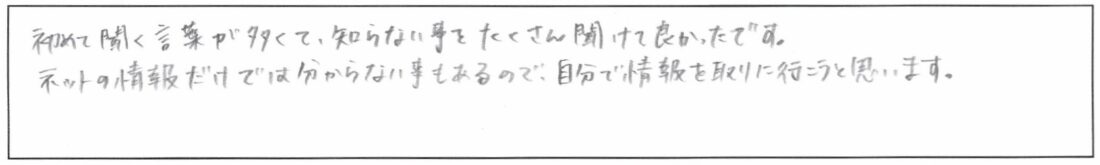 初めて聞く言葉が多くて、知らない事をたくさん聞けて良かったです。
ネットの情報だけでは分からない事もあるので、自分で情報を取りに行こうと思います。